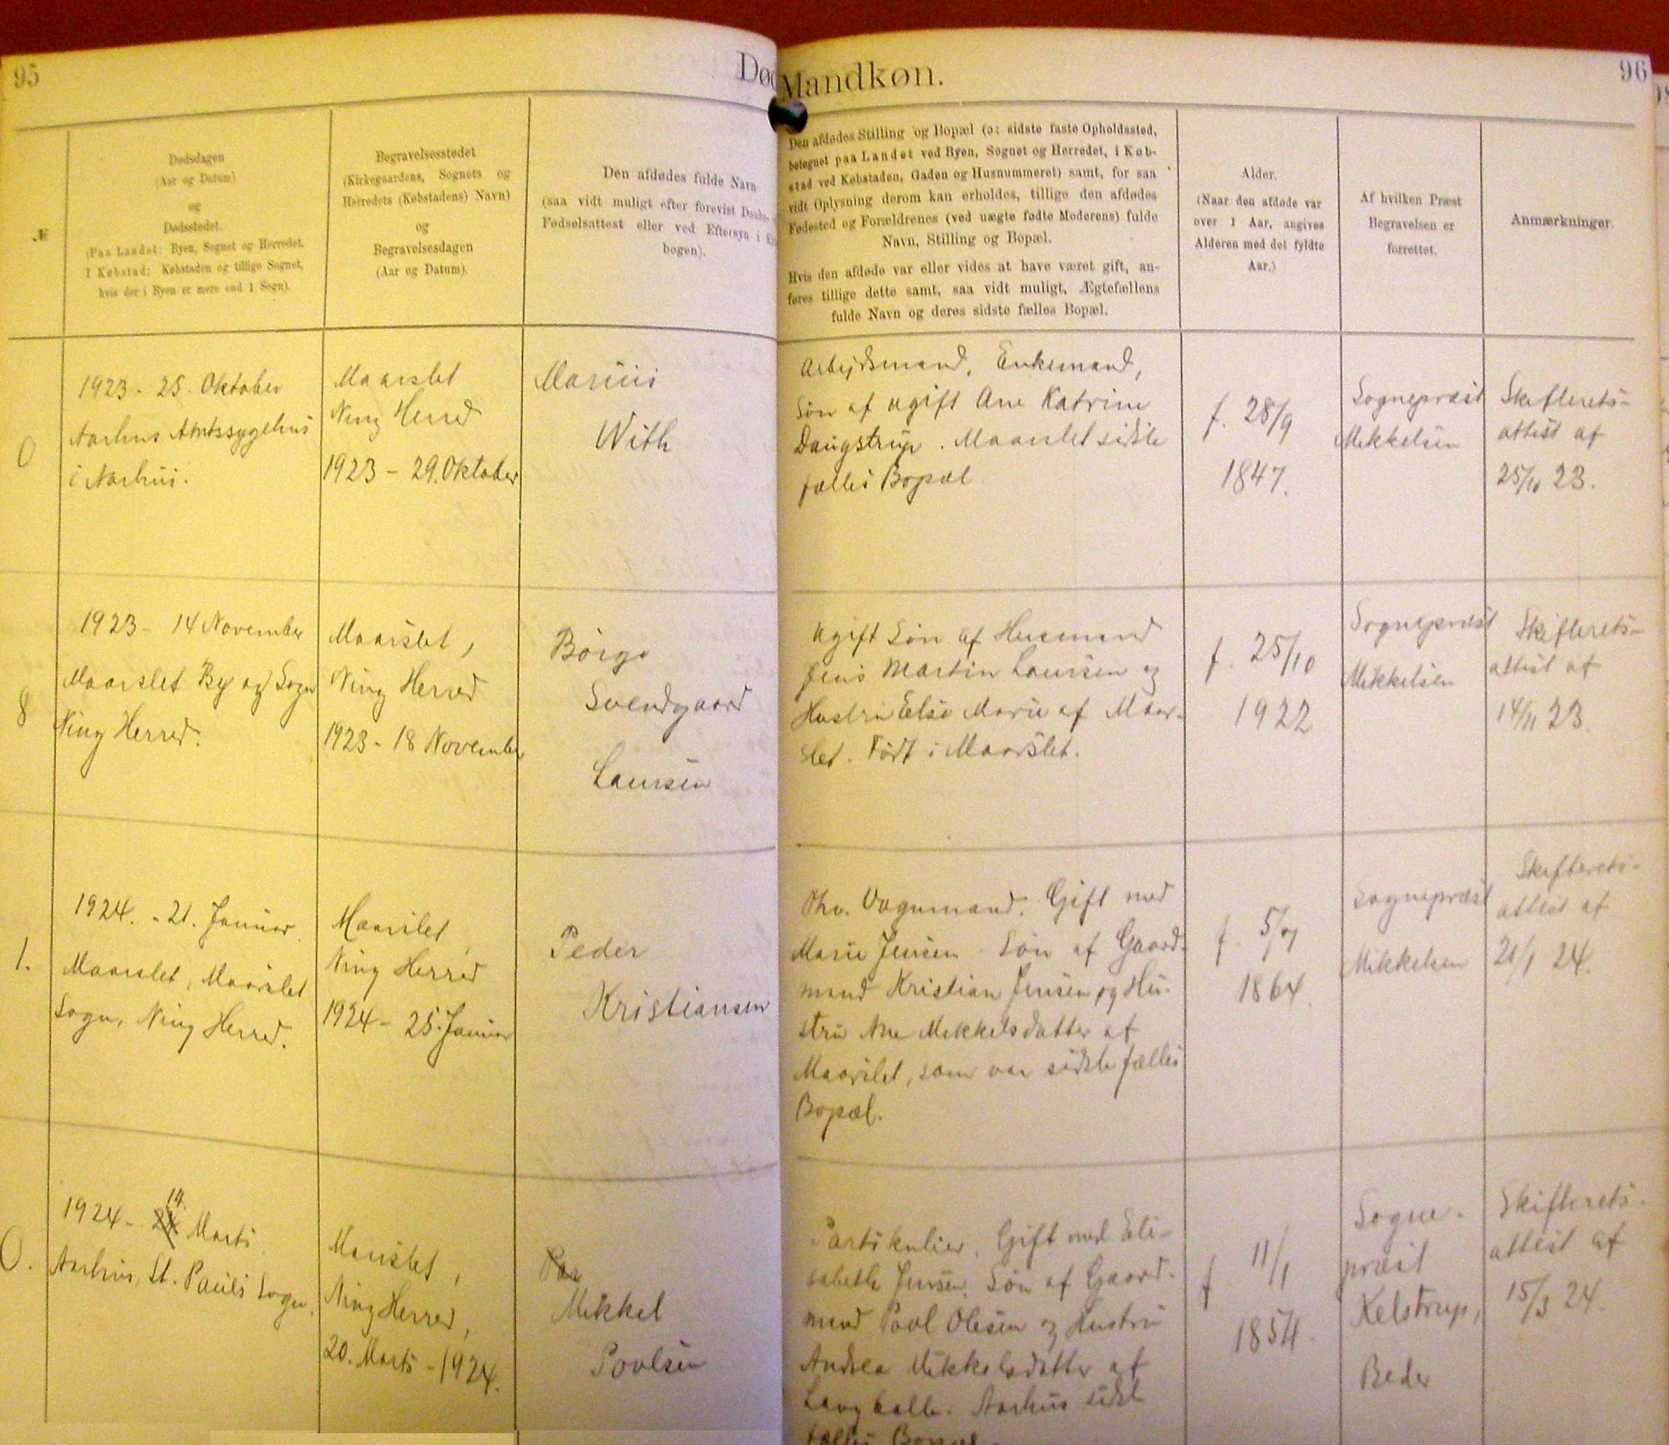 95
Død
Mandkøn.
96
№
Dødsdagen
(Aar og Datum)
og
Dødsstedet.
(Paa Landet: Byen, Sognet og Herredet.
I Købstad: Købstaden og tillige Sognet,
hvis der i Byen er mere end 1 Sogn).
Begravelsesstedet
(Kirkegaardens, Sognets og
Herredets (Købstadens) Navn)
og
Begravelsesdagen
(Aar og Datum).
Den afdødes fulde Navn
(saa vidt muligt efter forevist Daabs-
Fødselsattest eller ved Eftersyn i
bogen).
Den afdødes Stilling og Bopæl (ɔ: sidste faste Opholdssted,
betegnet paa Landet ved Byen, Sognet og Herredet, i Køb-
stad ved Købstaden, Gaden og Husnummeret) samt, for saa
vidt Oplysning derom kan erholdes, tillige den afdødes
Fødested og Forældrenes (ved uægte fødte Moderens) fulde
Navn, Stilling og Bopæl.
Hvis den afdøde var eller vides at have været gift, an-
føres tillige dette samt, saa vidt muligt, Ægtefællens
fulde Navn og deres sidste fælles Bopæl.
Alder.
(Naar den afdøde var
over 1 Aar, angives
Alderen med det fyldte
Aar.)
Af hvilken Præst
Begravelsen er
forrettet.
Anmærkninger.
0
1923 - 25. Oktober
Aarhus Amtssygehus
i Aarhus.
Maarslet
Ning Herred
1923 - 29. Oktober
Marius
With
Arbejdsmand, Enkemand,
Søn af ugift Ane Katrine
Daugstrup. Maarslet sidste
fælles Bopæl
f. 28/9
1847.
Sognepræst
Mikkelsen
Skifterets-
attest af
25/10 23.
8
1923 - 14 November
Maarslet By og Sogn
Ning Herred.
Maarslet,
Ning Herred
1923 - 18 November
Börge
Svendgaard
Laursen
Ugift Søn af Husmand
Jens Martin Laursen og
Hustru Else Marie af Maar-
slet. Født i Maarslet.
f. 25/10
1922
Sognepræst
Mikkelsen
Skifterets-
attest af
14/11 23.
1.
1924. - 21. Januar.
Maarslet, Maarslet
Sogn, Ning Herred.
Maarslet,
Ning Herred
1924 - 25. Januar
Peder
Kristiansen
Fhv. Vognmand. Gift med
Marie Jensen. Søn af Gaard-
mand Kristian Jensen og Hu-
stru Ane Mikkelsdatter af
Maarslet, som var sidste fælles
Bopæl.
f. 5/7
1864.
Sognepræst
Mikkelsen
Skifterets-
attest af
21/1 24.
0.
14.
1924 - 24 Marts.
Aarhus, St. Pauls Sogn.
Maarslet,
Ning Herred,
20. Marts - 1924.
Mikkel
Povlsen
Partikulier. Gift med Eli-
sabeth Jensen. Søn af Gaard-
mand Povl Olesen og Hustru
Andrea Mikkelsdatter af
Langballe. Aarhus sidst
fælles Bopæl.
f 11/1
1854.
Sogne-
præst
Kelstrup,
Beder
Skifterets-
attest af
15/3 24.